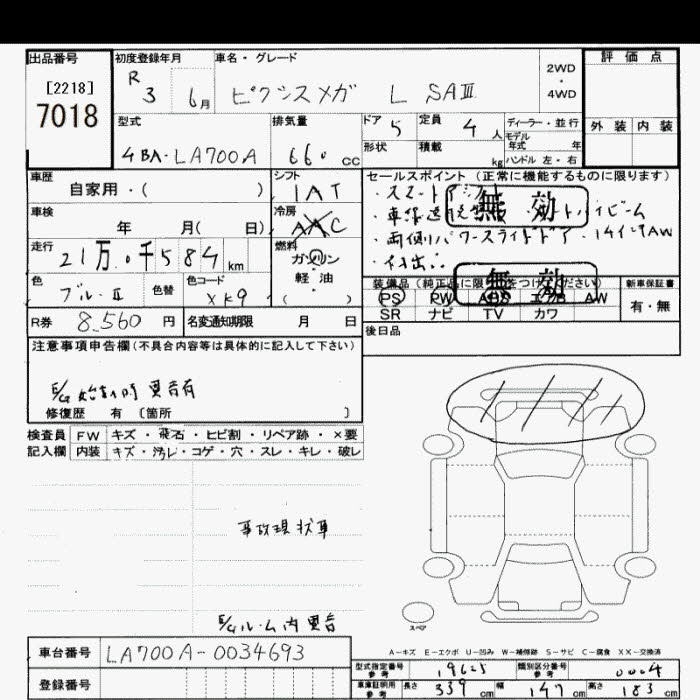 出品番号
[2218]
7018
初度登録年月
R 3 6月
車名・グレード
ピクシスメガ L SAⅢ
2WD
・
4WD
評価点
外装 内装
型式
4BA-LA700A
排気量
660 cc
ドア 5
定員 4 人
形状
積載 kg
ディーラー・並行
モデル年式 年
ハンドル 左・右
車歴
自家用・( )
シフト
IAT
車検
年 月( 日)
冷房
AAC
走行
21万0千584km
燃料
ガソリン
軽油
( )
色
ブルーⅡ
色替
色コード
XK9
R券 8,560 円
名変通知期限 月 日
セールスポイント(正常に機能するものに限ります)
・スマートアシスト
無効
・両側パワースライドドア・14インチAW
無効
装備品(純正品に限り○をつけください)
PS PW ABS エアB AW
SR ナビ TV カワ
新車保証書
有・無
後日品
注意事項申告欄(不具合内容等は具体的に記入して下さい)
E/G始動時異音有
修復歴 有 〔箇所 〕
検査員 FW キズ・飛石・ヒビ割・リペア跡・×要
記入欄 内装 キズ・汚レ・コゲ・穴・スレ・キレ・破レ
事故現状車
E/Gルーム内異音
スペア
A－キズ E－エクボ U－凹み W－補修跡 S－サビ C－腐食 XX－交換済
車台番号 LA700A-0034693
登録番号
型式指定番号 参考 19625
類別区分番号 参考 0004
車庫証明用 参考 長さ 339cm 幅 147cm 高さ 183cm